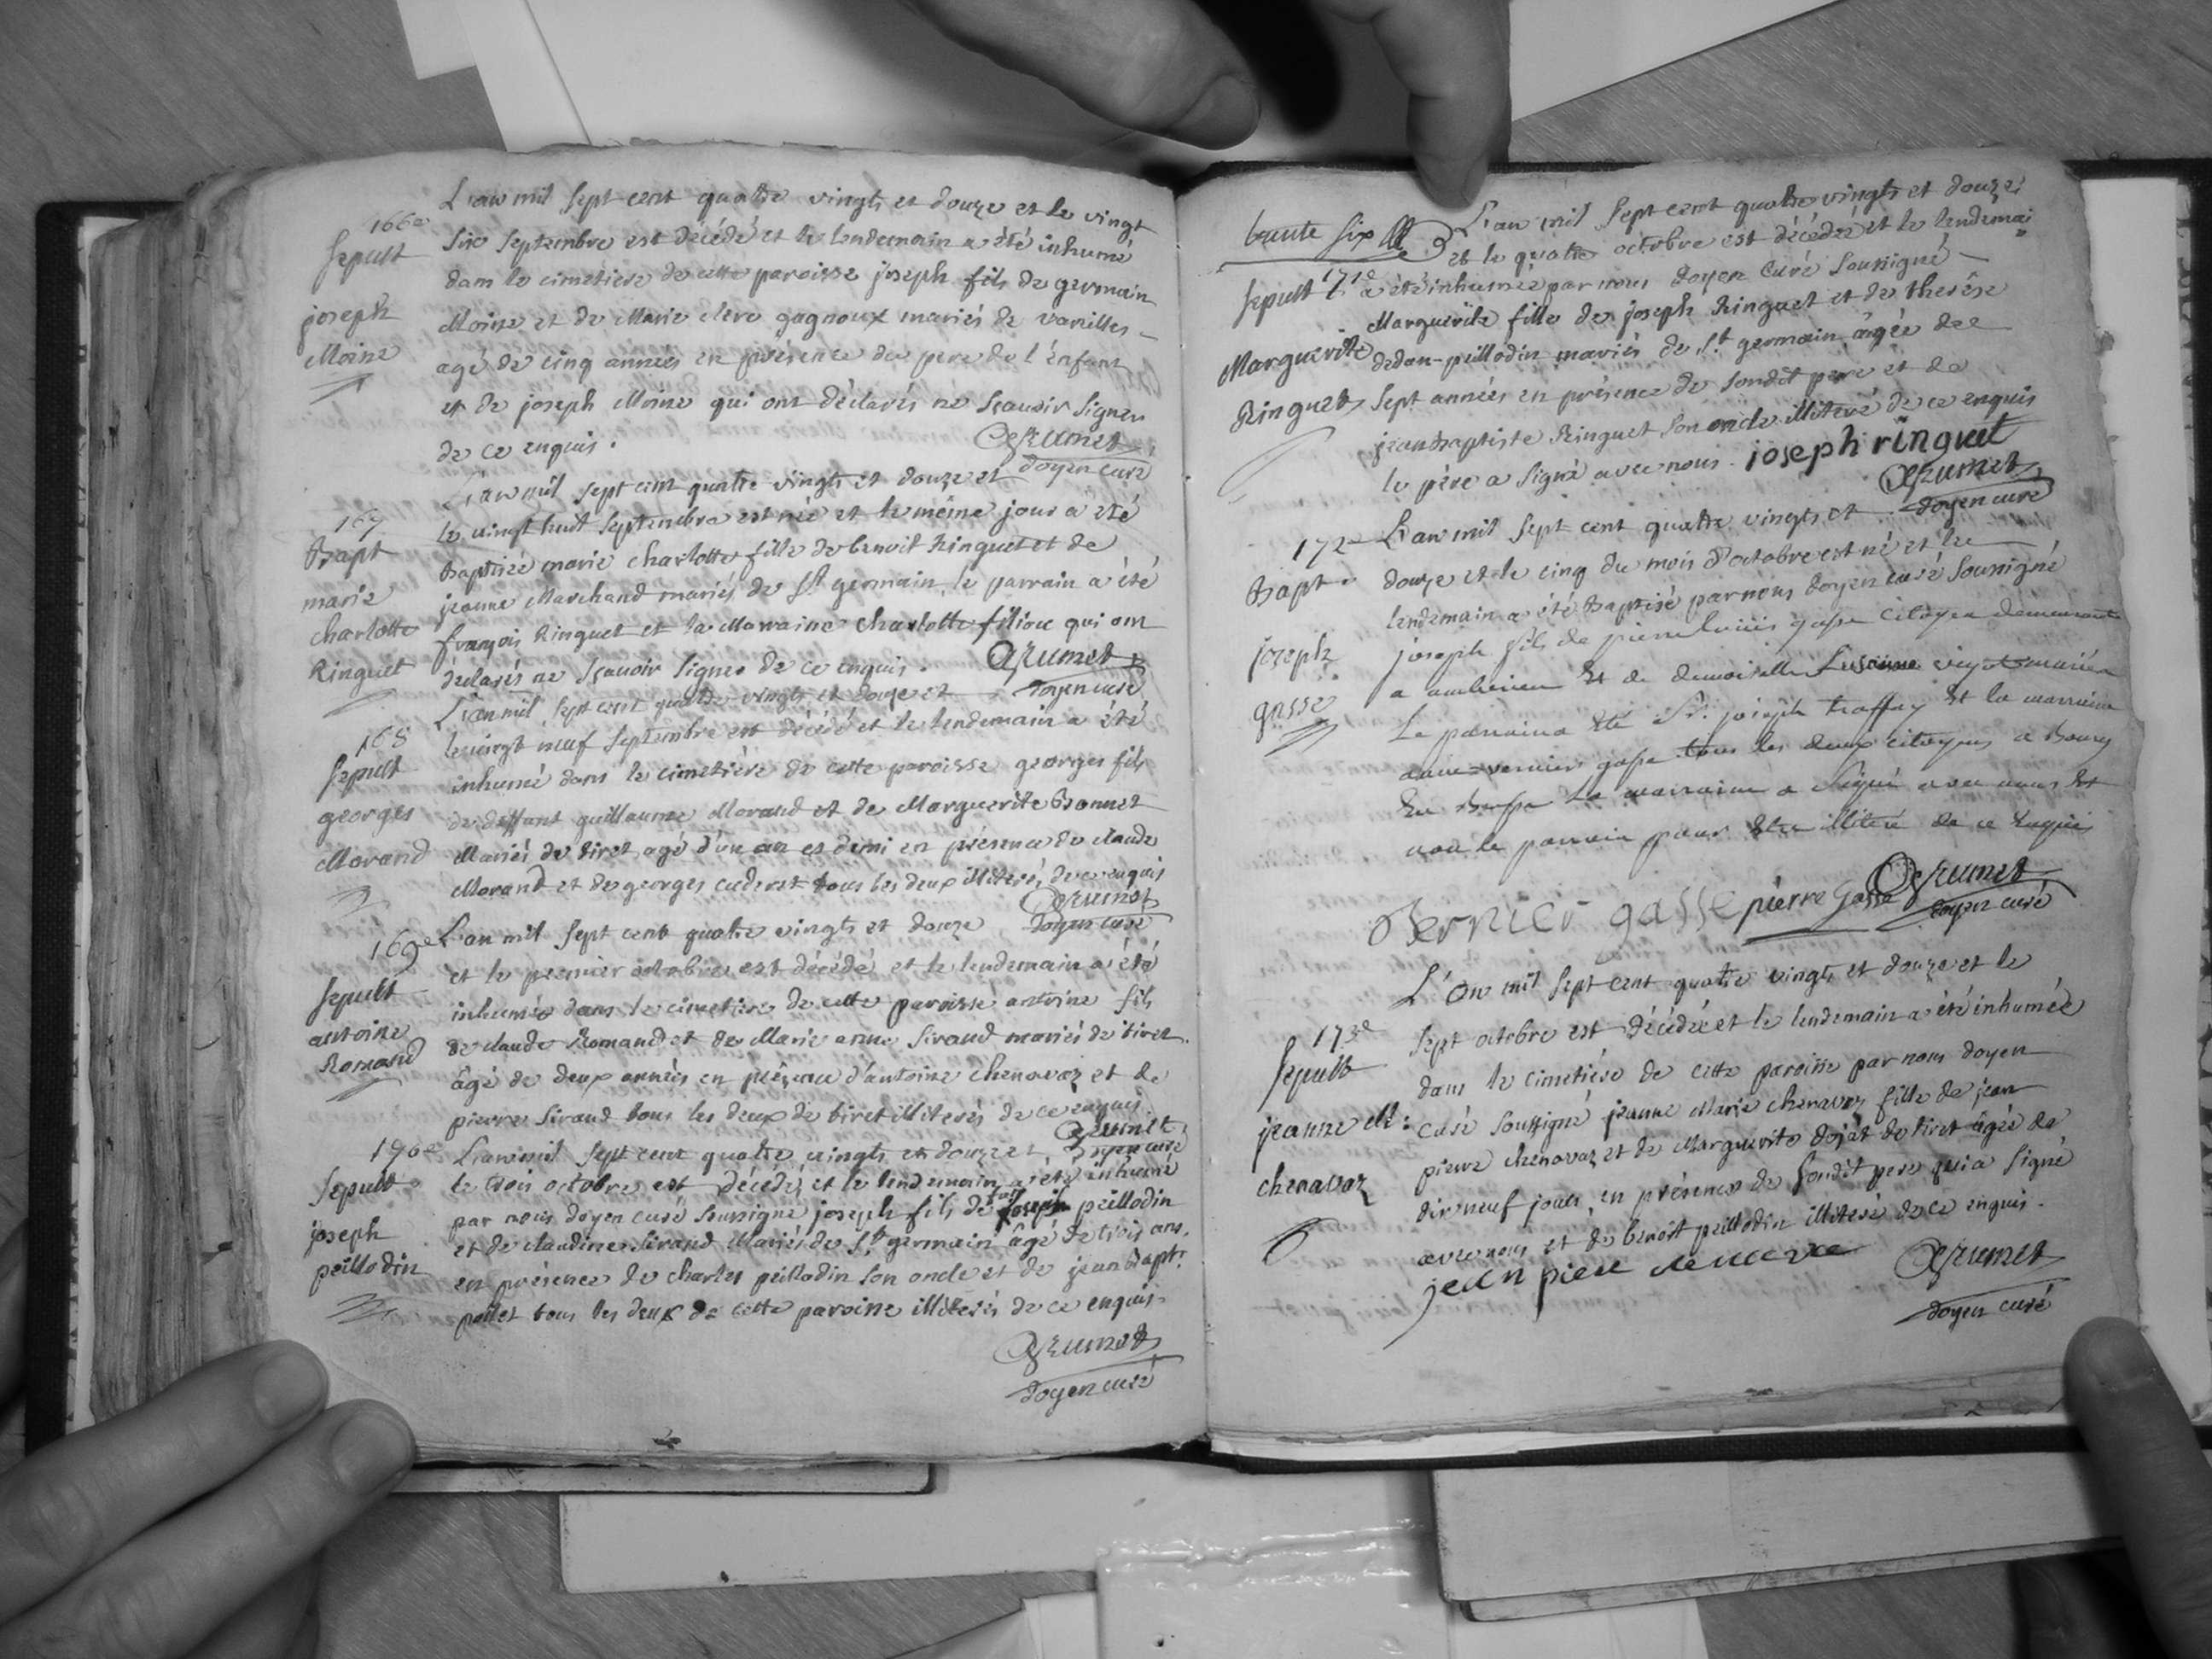 166e
Sepult
joseph
Moine
L'an mil sept cent quatre vingts et douze et le vingt
six septembre est décédé et le lendemain a été inhumé
dans le cimetiere de cette paroisse joseph fils de germain
Moine et de Marie clere gagnoux mariés de varilles
agé de cinq années en présence du pere de l'enfant
et de joseph Moine qui ont déclarés ne sçavoir signer
de ce enquis.
doyen curé
167
Bapt
marie
charlotte
Ringuet
L'an mil sept cent quatre vingts et douze et
le vingt huit septembre est née et le même jour a été
baptisée marie charlotte fille de benoit Ringuet et de
jeanne Marchand mariés de St germain, le parrain a été
françois Ringuet et la Marraine charlotte filiou qui ont
déclarés ne sçavoir signer de ce enquis.
doyen curé
168
Sepult
georges
Morand
L'an mil sept cent quatre vingts et douze et
le vingt neuf septembre est décédé et le lendemain a été
inhumé dans le cimetière de cette paroisse georges fils
de deffunt guillaume Morand et de Marguerite Bonnet
Mariés de tiret agé d'un an et demi en présence de claude
Morand et de georges tous les deux illiterés de ce enquis
doyen curé
169e
Sepult
antoine
Romand
L'an mil sept cent quatre vingts et douze
et le premier octobre est décédé et le lendemain a été
inhumé dans le cimetiere de cette paroisse antoine fils
de claude Romand et de Marie anne Sirand mariés de tiret
âgé de deux années en présence d'antoine chenavaz et de
pierre Sirand tous les deux de tiret illiterés de ce enquis
doyen curé
170e
Sepult
joseph
peillodin
L'an mil sept cent quatre vingts et douze et
le trois octobre est décédé et le lendemain a été inhumé
par nous doyen curé soussigné joseph fils de joseph peillodin
et de claudine Sirand Mariés de St germain âgé de trois ans
en présence de charles peillodin son oncle et de jean Bapt.
pollet tous les deux de cette paroisse illiterés de ce enquis
doyen curé
trente six
Sepult 171e
Marguerite
Ringuet
L'an mil sept cent quatre vingts et douze
et le quatre octobre est décédée et le lendemai
a été inhumée par nous doyen curé soussigné
Marguerite fille de joseph Ringuet et de therèse
dedan-peillodin mariés de St germain âgée de
sept années en présence de sondit pere et de
jean baptiste Ringuet son oncle illiteré de ce enquis
le père a signé avec nous. joseph ringuet
doyen curé
172e
Bapt.
joseph
gasse
L'an mil sept cent quatre vingts et
douze et le cinq du mois d'octobre est né et le
lendemain a été Baptisé par nous doyen curé soussigné
joseph fils de pierre louiis gasse citoyen demeurante
a amberieu et de demoiselle Lusanne mariés
Le parraina été Sr. joseph traffay et la marraine
vernier gasse tous les deux citoyens a Bourg
En Bresse La marraine a signé avec nous et
non le parrain pour etre illiteré de ce enquis
Bernier gasse pièrre Gasse
doyen curé
173e
Sepult
jeanne M:
chenavaz
L'an mil sept cent quatre vingts et douze et le
sept octobre est décédée et le lendemain a été inhumée
dans le cimetière de cette paroisse par nous doyen
curé soussigné jeanne Marie chenavaz fille de jean
pierre chenavaz et de Marguerite dojat de tiret âgée de
dix neuf jours, en présence de sondit pere qui a signé
avec nous et de benoit peillodin illiteré de ce enquis.
jean piere
doyen curé